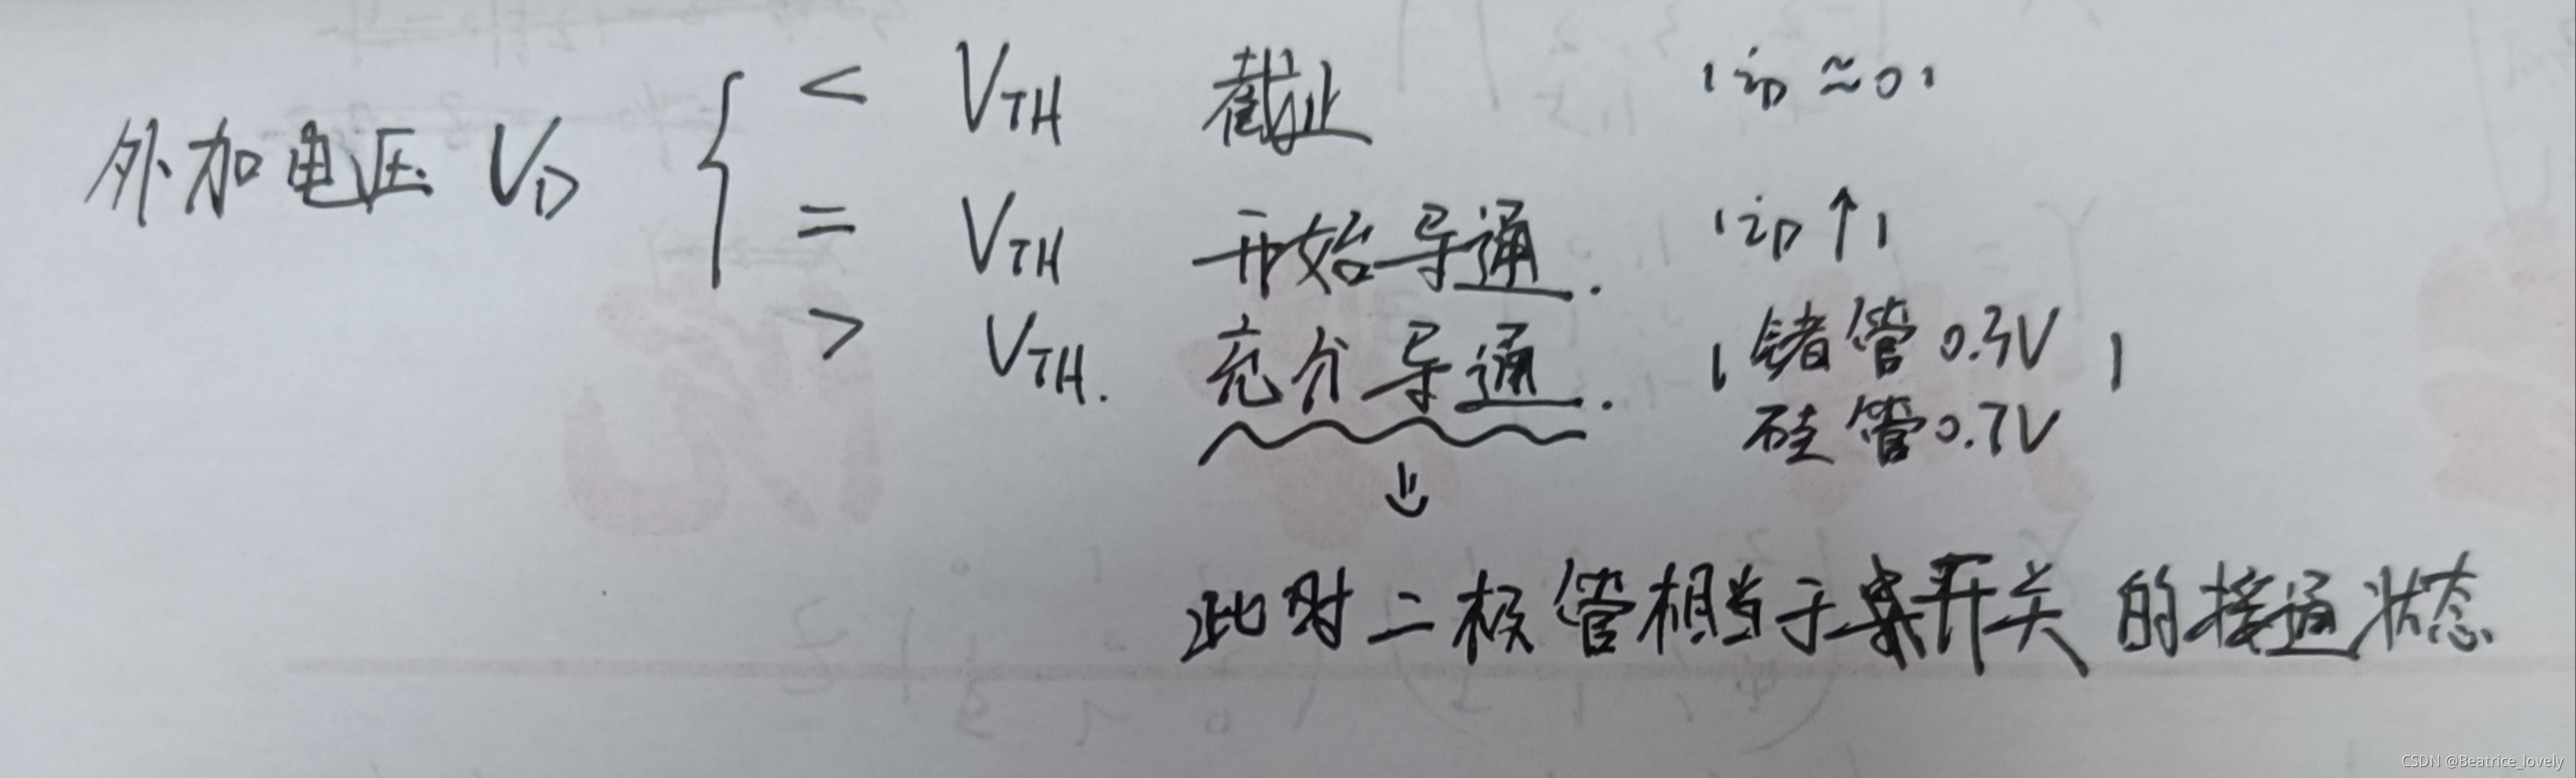 外加电压 VD { < VTH 截止 (iD ≈ 0)
= VTH 开始导通. (iD ↑)
> VTH. 充分导通. (锗管 0.3V)
硅管 0.7V
⇓
此时二极管相当于 开关的接通状态
CSDN @Beatrice_lovely